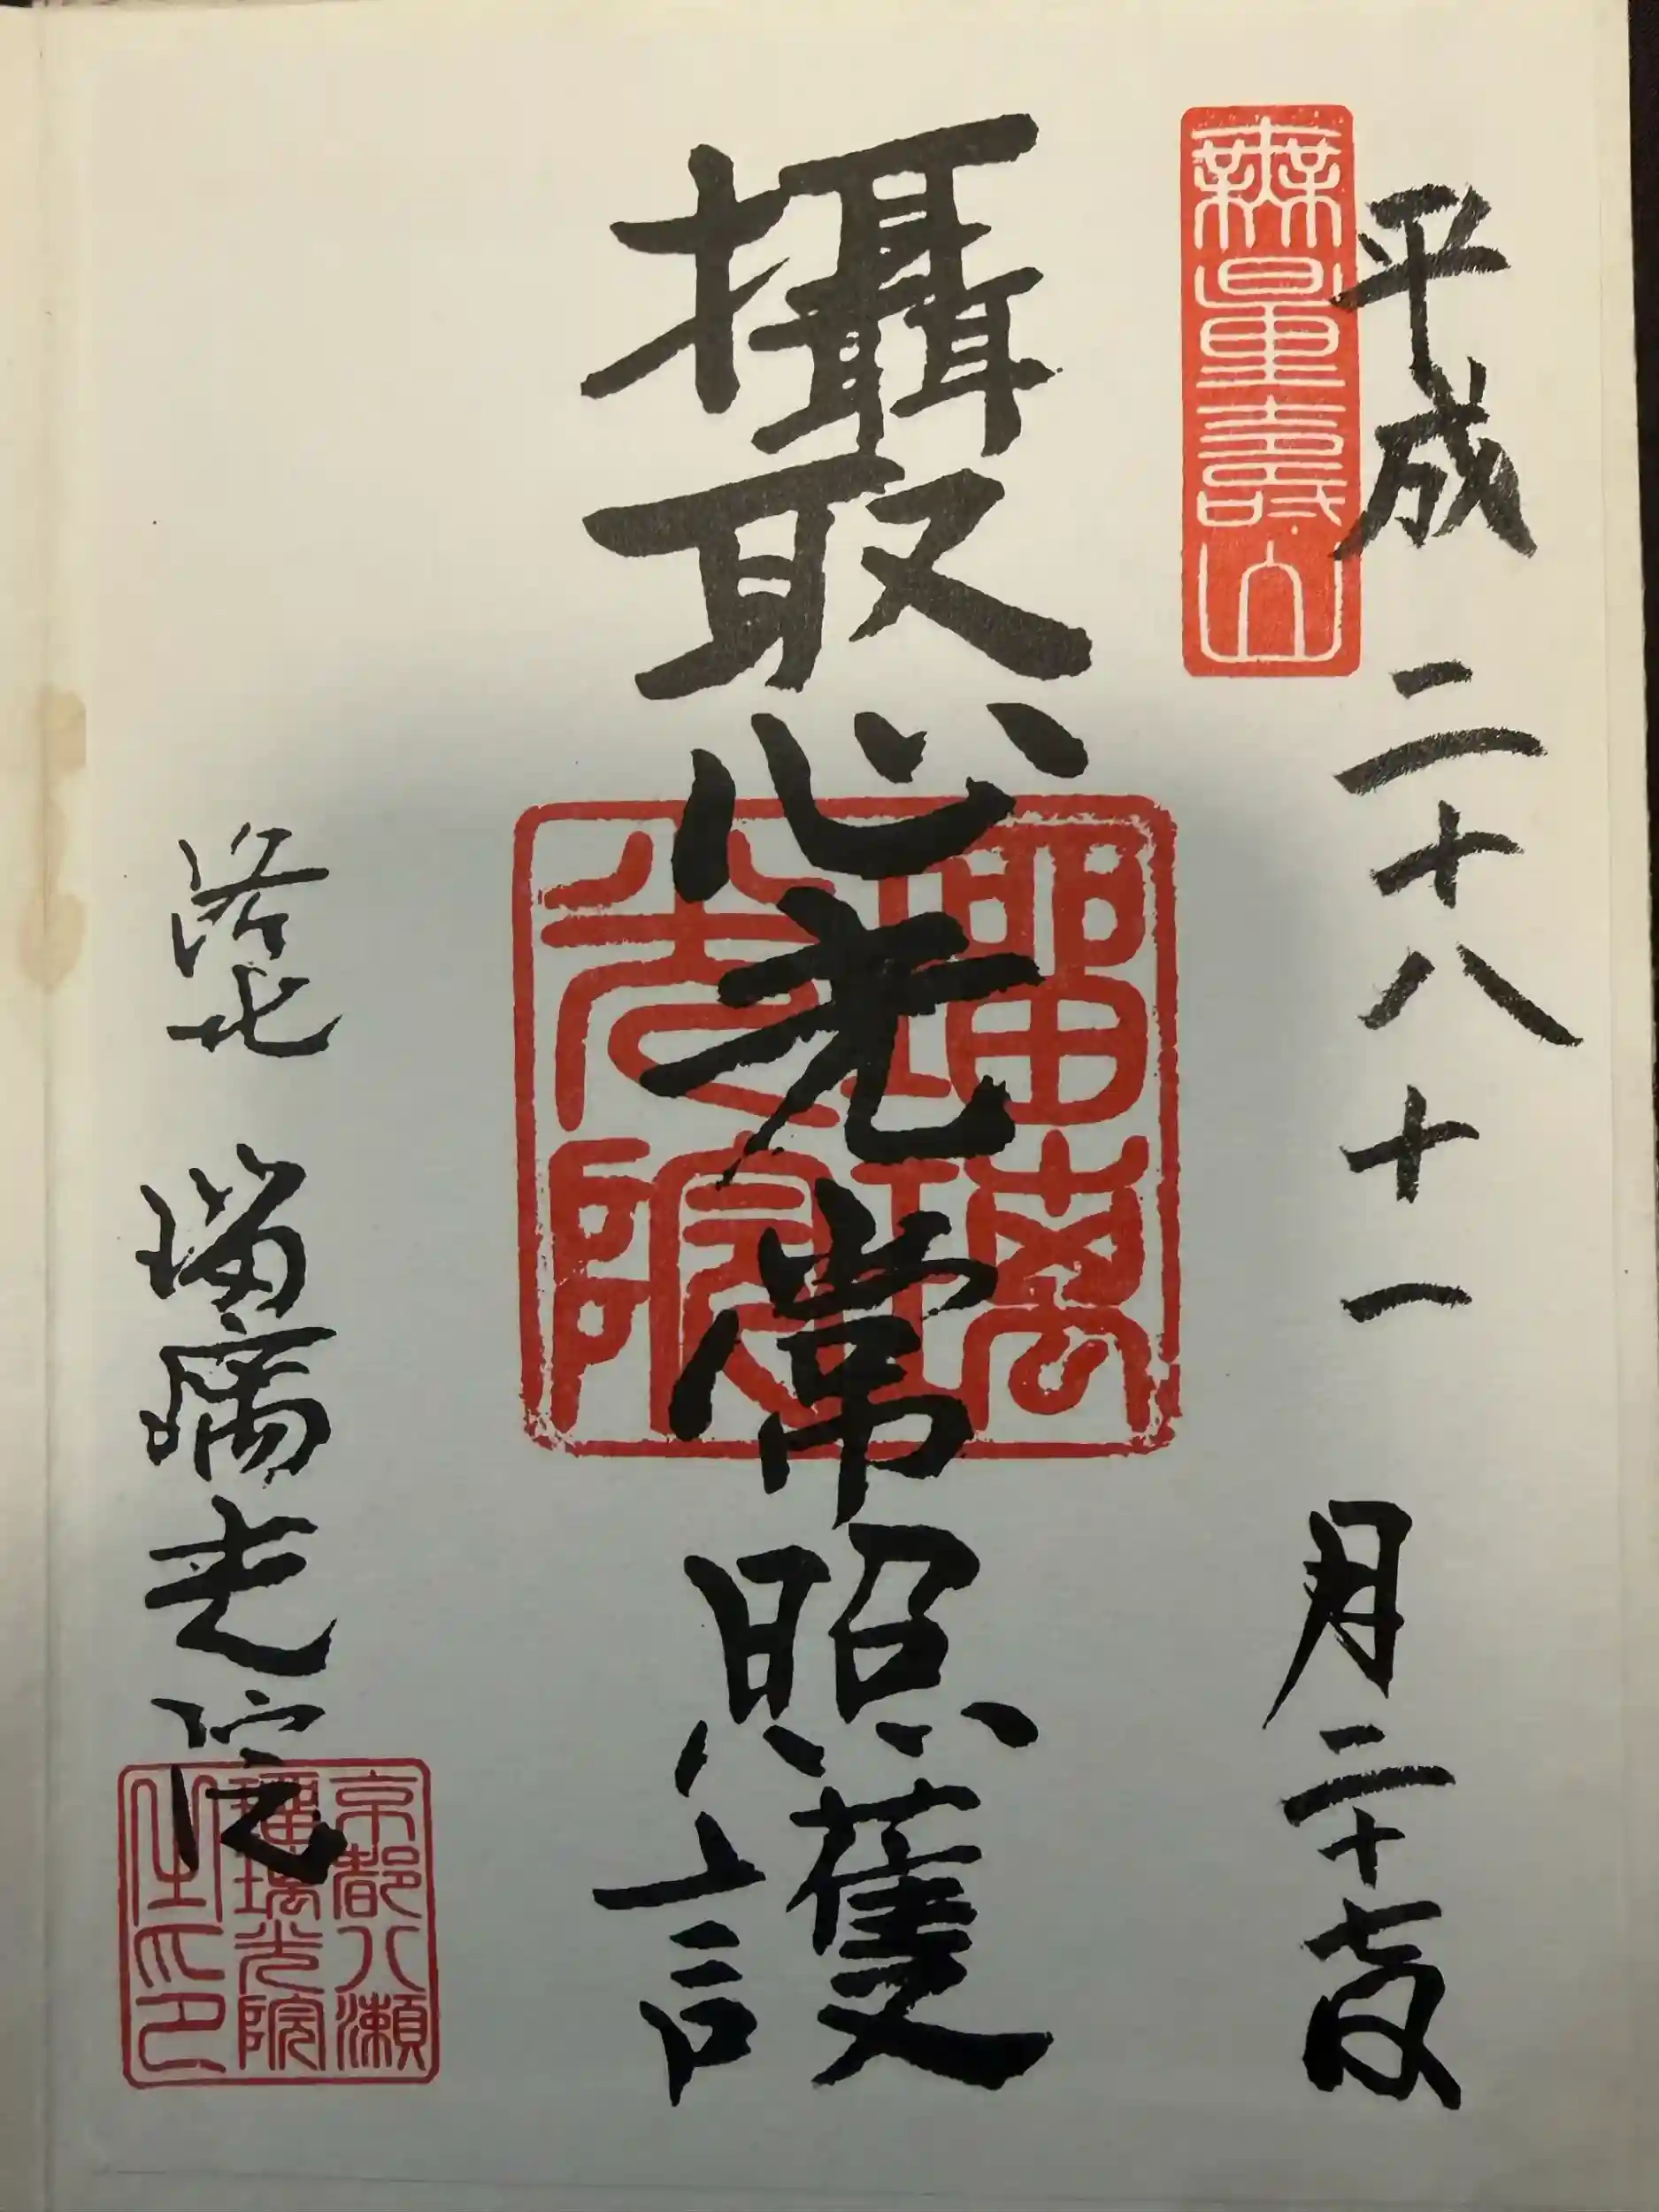 平成二十八 十一月二十七日
無量壽山
攝取心光常照護
瑠璃
光院
洛北 瑠璃光院
京都八瀬
瑠璃光院
之印